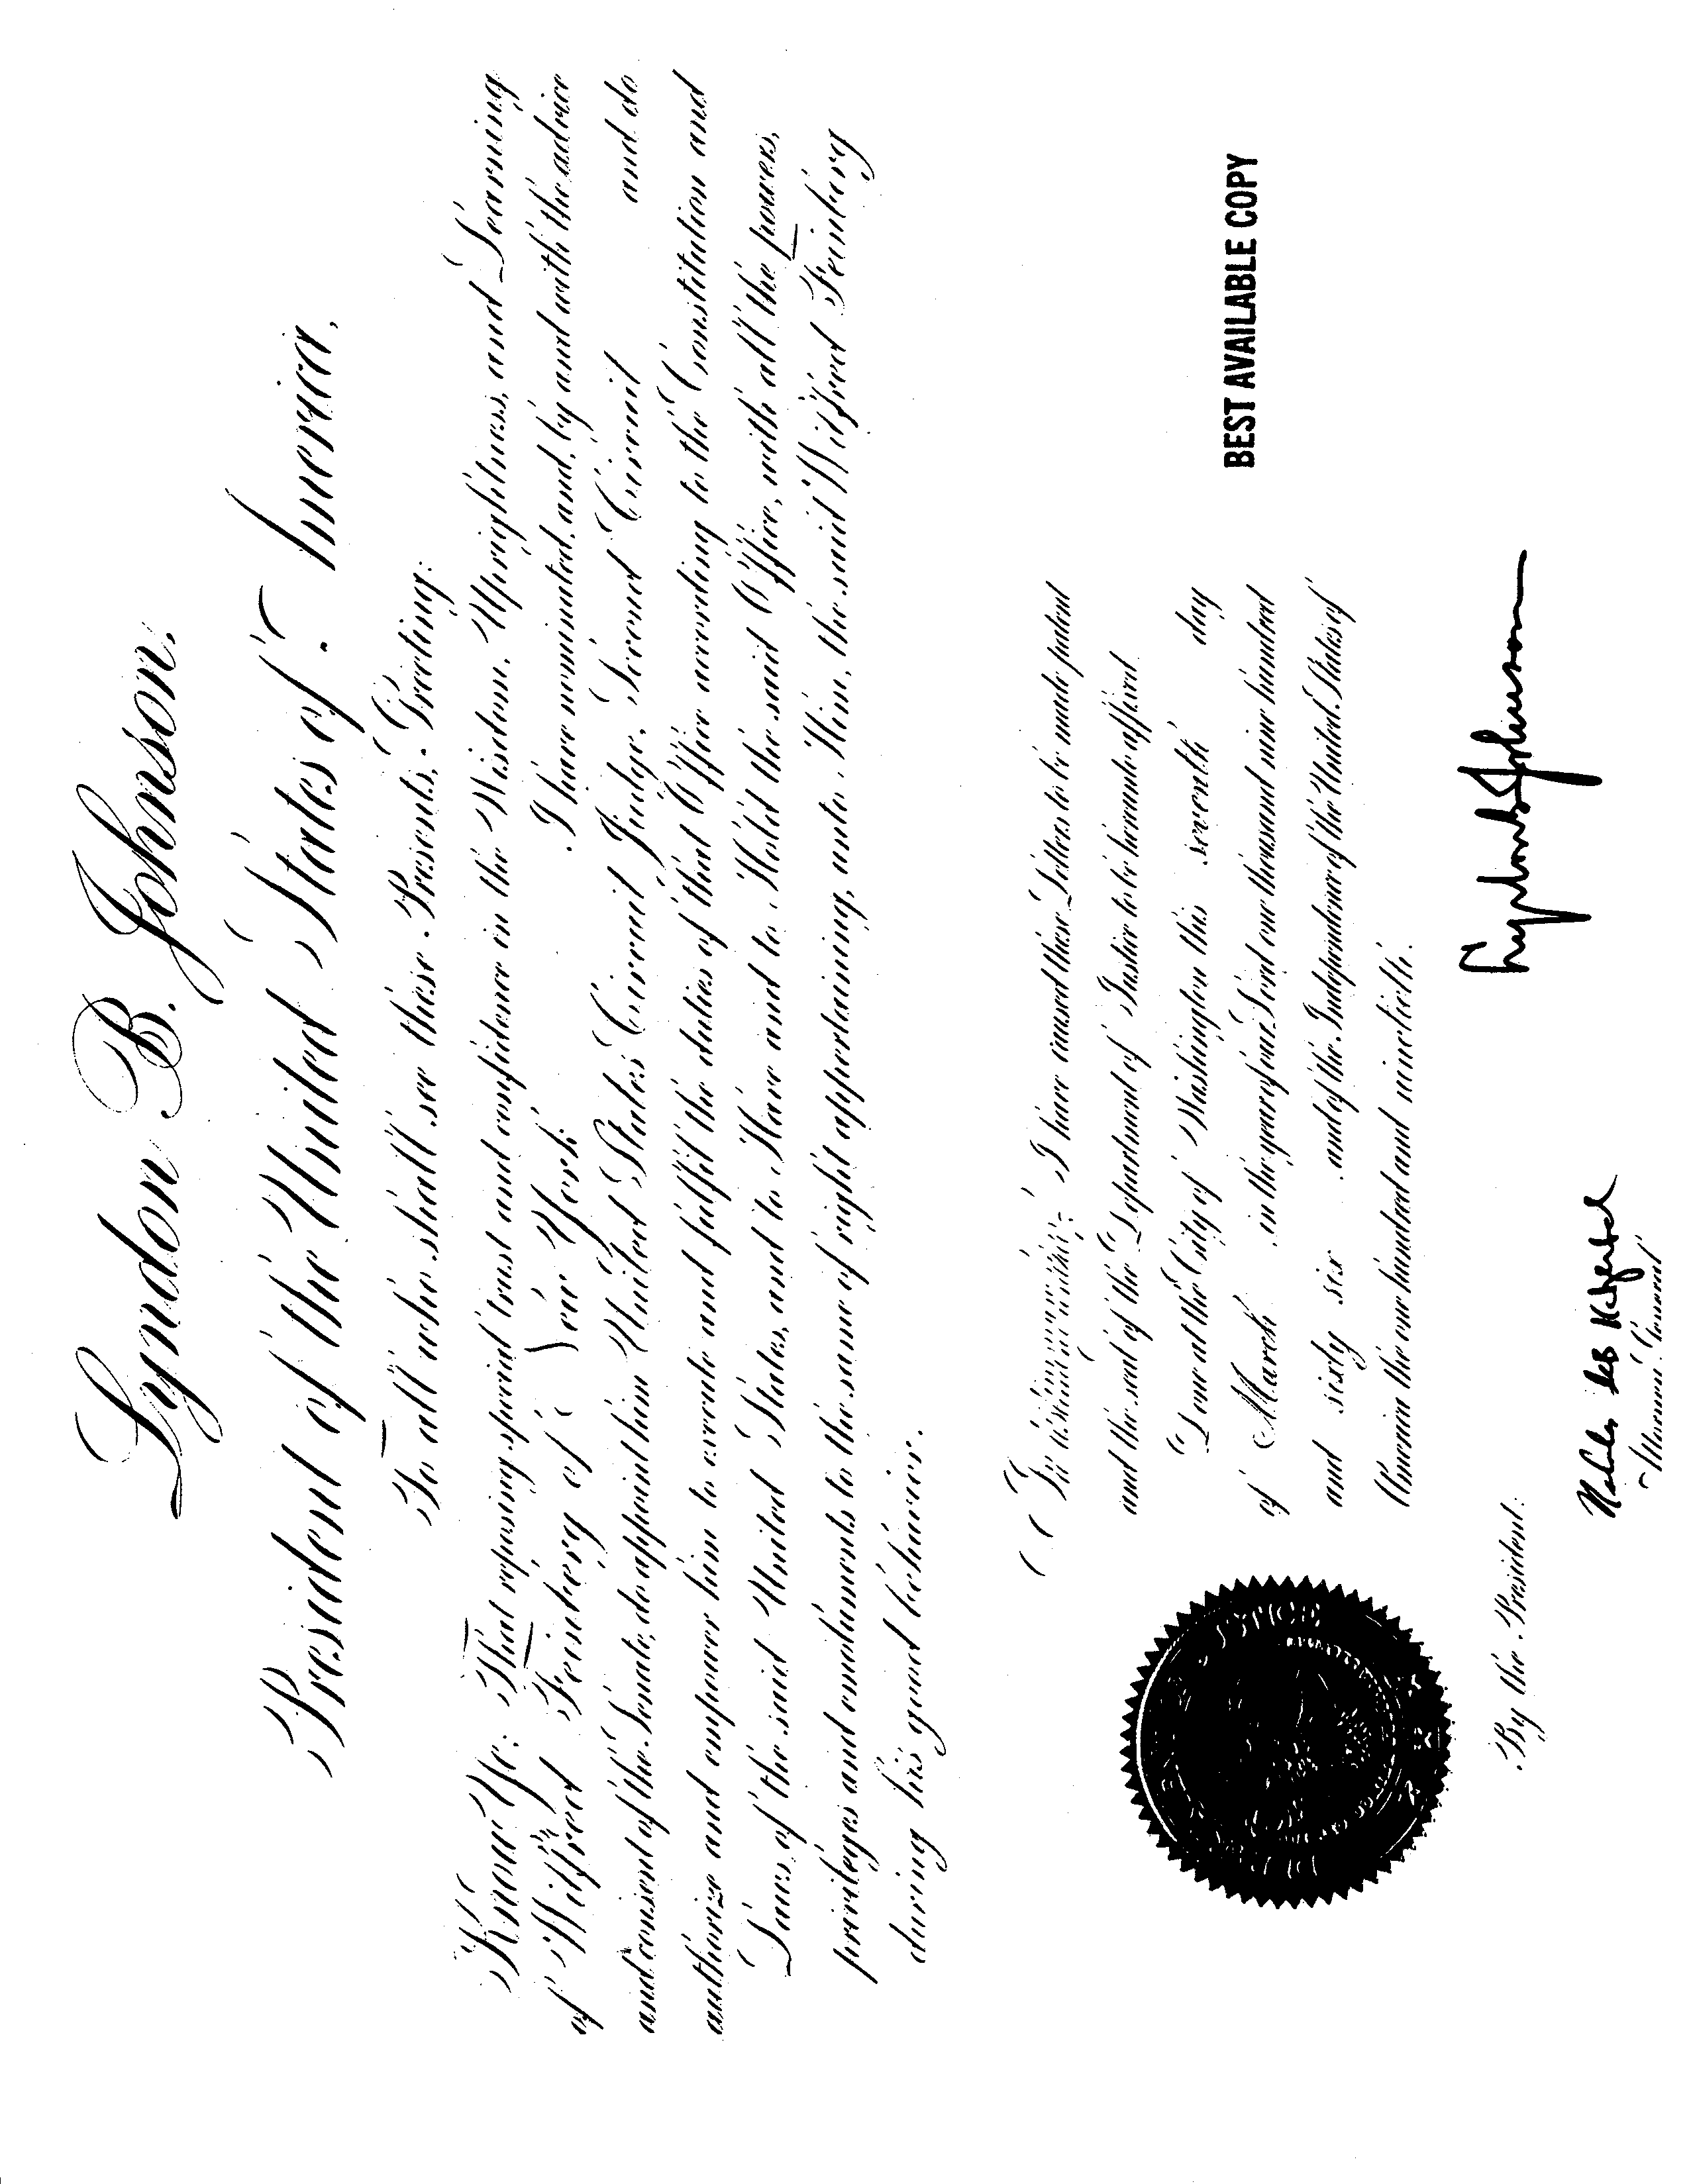 Lyndon B. Johnson,
President of the United States of America,
To all who shall see these Presents, Greeting:
Know Ye: That reposing special trust and confidence in the Wisdom, Uprightness, and Learning
of Wilfred Feinberg of New York I have nominated, and, by and with the advice
and consent of the Senate, do appoint him United States Circuit Judge, Second Circuit and do
authorize and empower him to execute and fulfil the duties of that Office according to the Constitution and
Laws of the said United States, and to Have and to Hold the said Office, with all the powers,
privileges and emoluments to the same of right appertaining, unto Him, the said Wilfred Feinberg
during his good behavior.
In testimony whereof, I have caused these Letters to be made patent
and the seal of the Department of Justice to be hereunto affixed.
Done at the City of Washington this seventh day
of March in the year of our Lord one thousand nine hundred
and sixty six and of the Independence of the United States of
America the one hundred and ninetieth.
BEST AVAILABLE COPY
Lyndon B Johnson
By the President:
Nicholas deB Katzenbach
Attorney General
JUSTICE